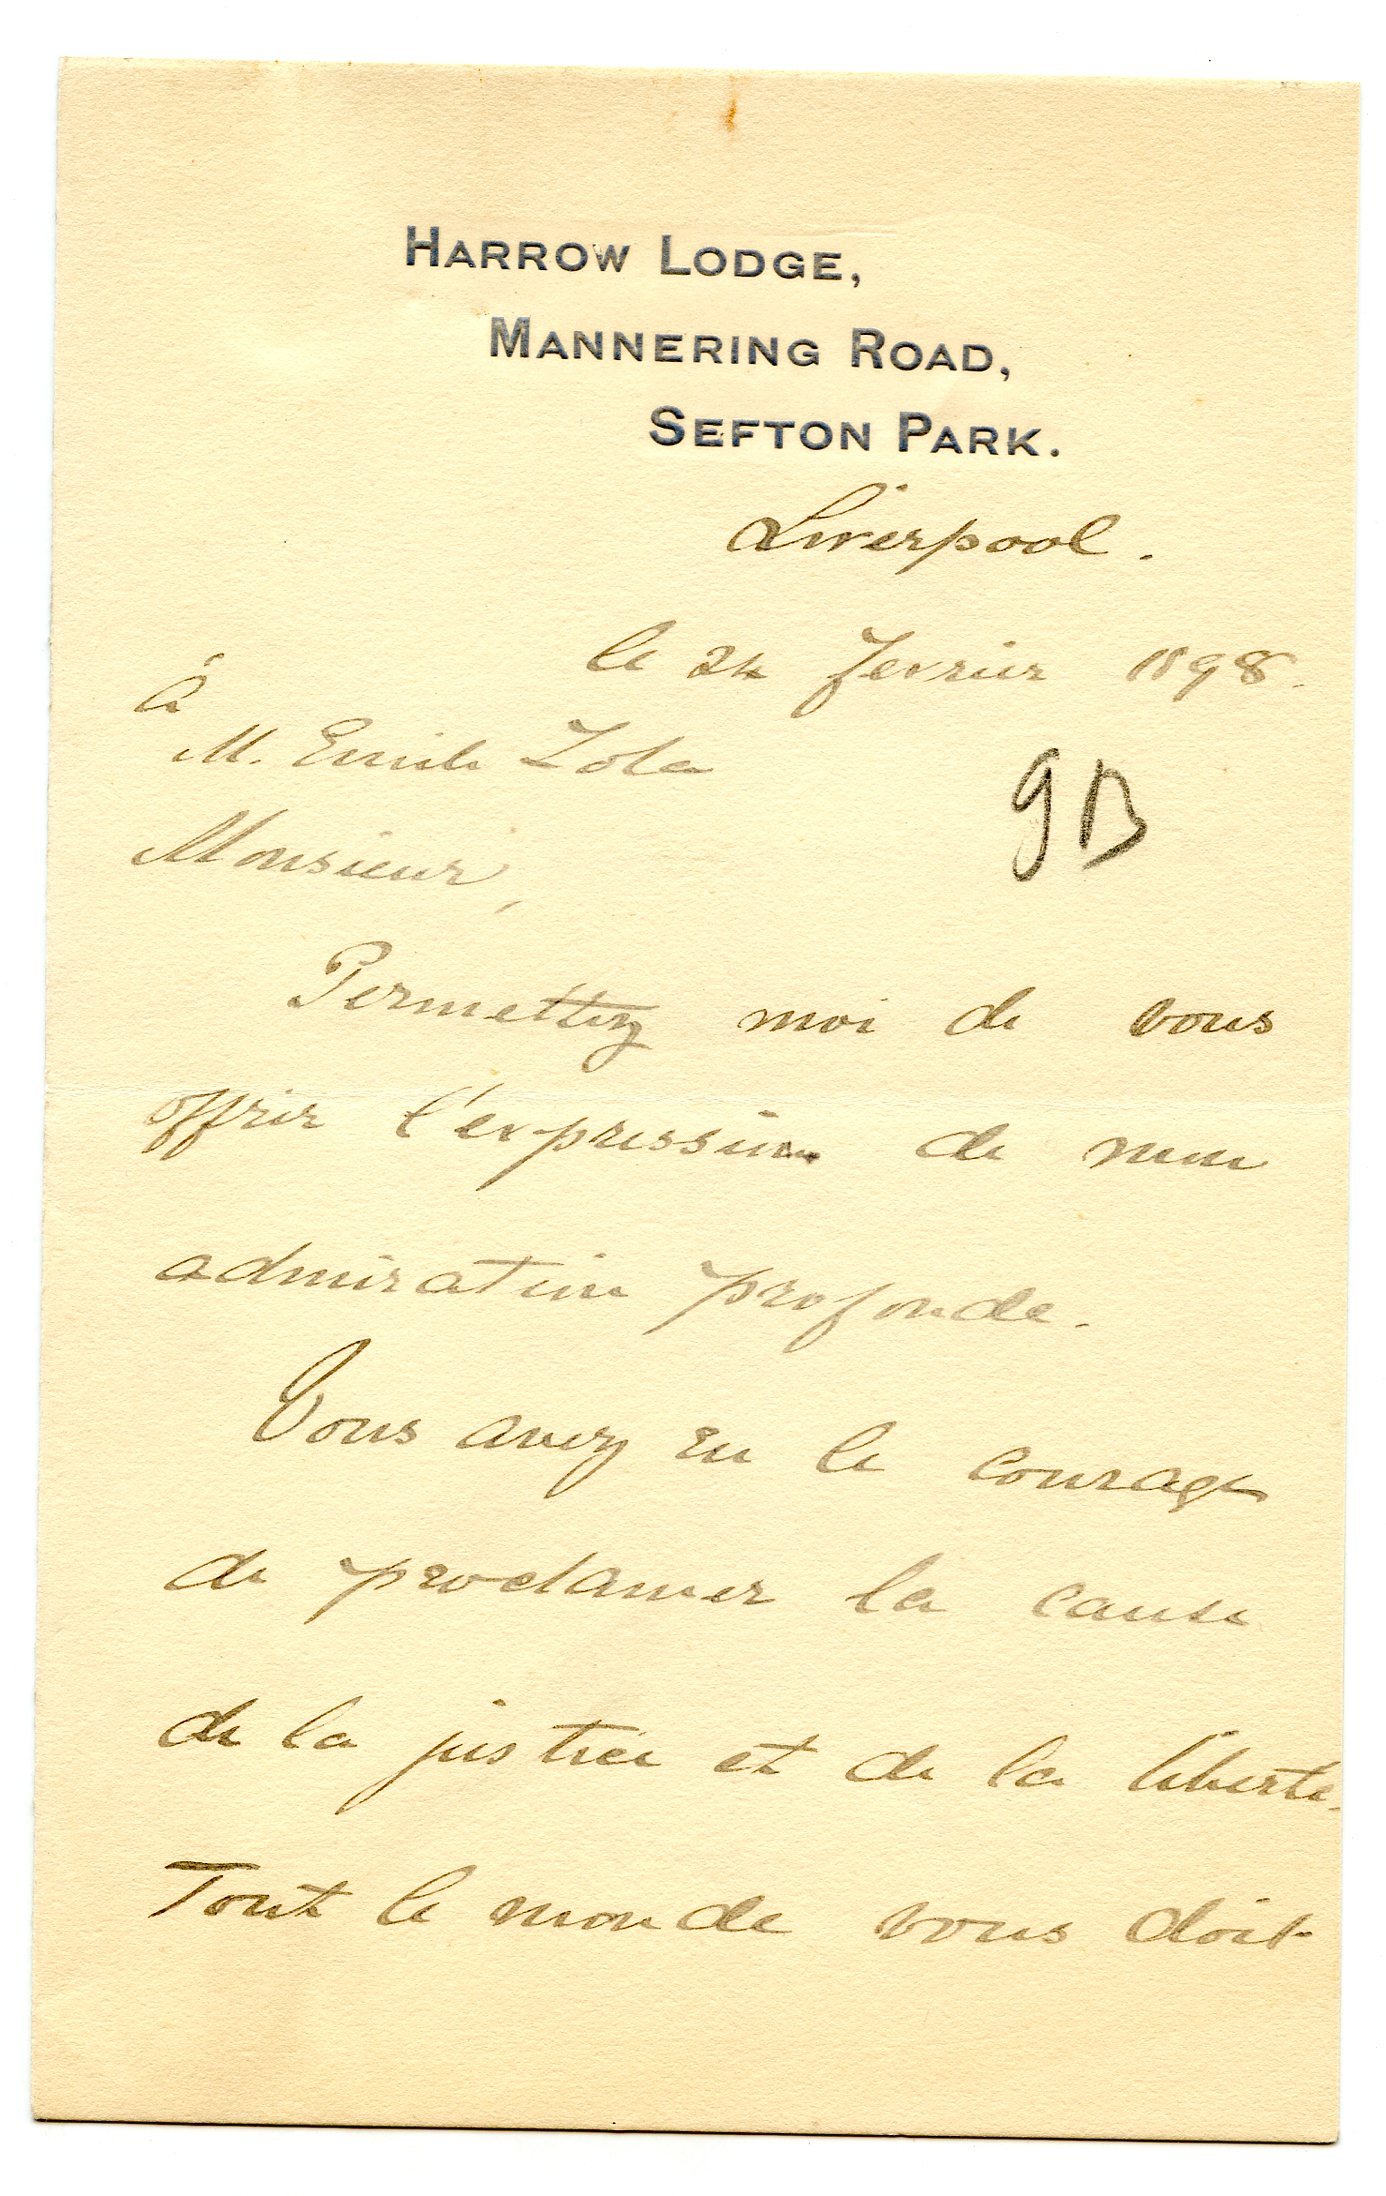 HARROW LODGE,
MANNERING ROAD,
SEFTON PARK.
Liverpool.
le 24 fevrier 1898.
à
M. Emile Zola
GB
Monsieur,
Permettez moi de vous
offrir l'expression de mon
admiration profonde.
Vous avez eu le courage
de proclamer la cause
de la justice et de la liberte.
Tout le monde vous doit